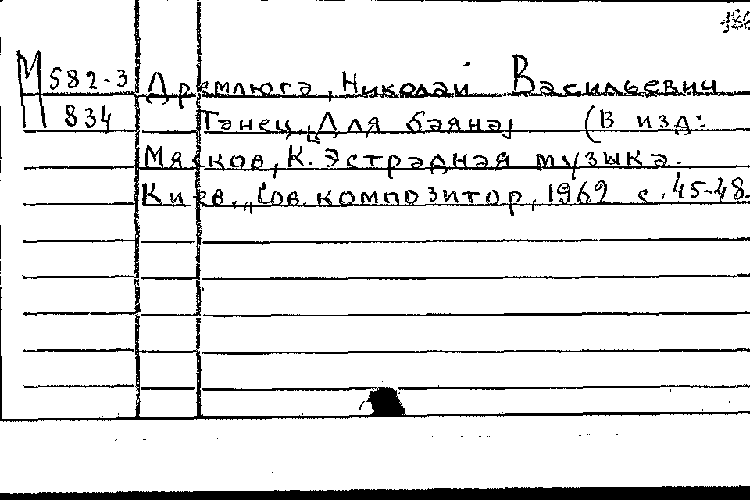 М 582-3 Дремлюга, Николай Васильевич
834 Танец. [Для баяна] (В изд:
Мясков, К. Эстрадная музыка.
Киев, „Сов. композитор, 1962 с. 45-48.